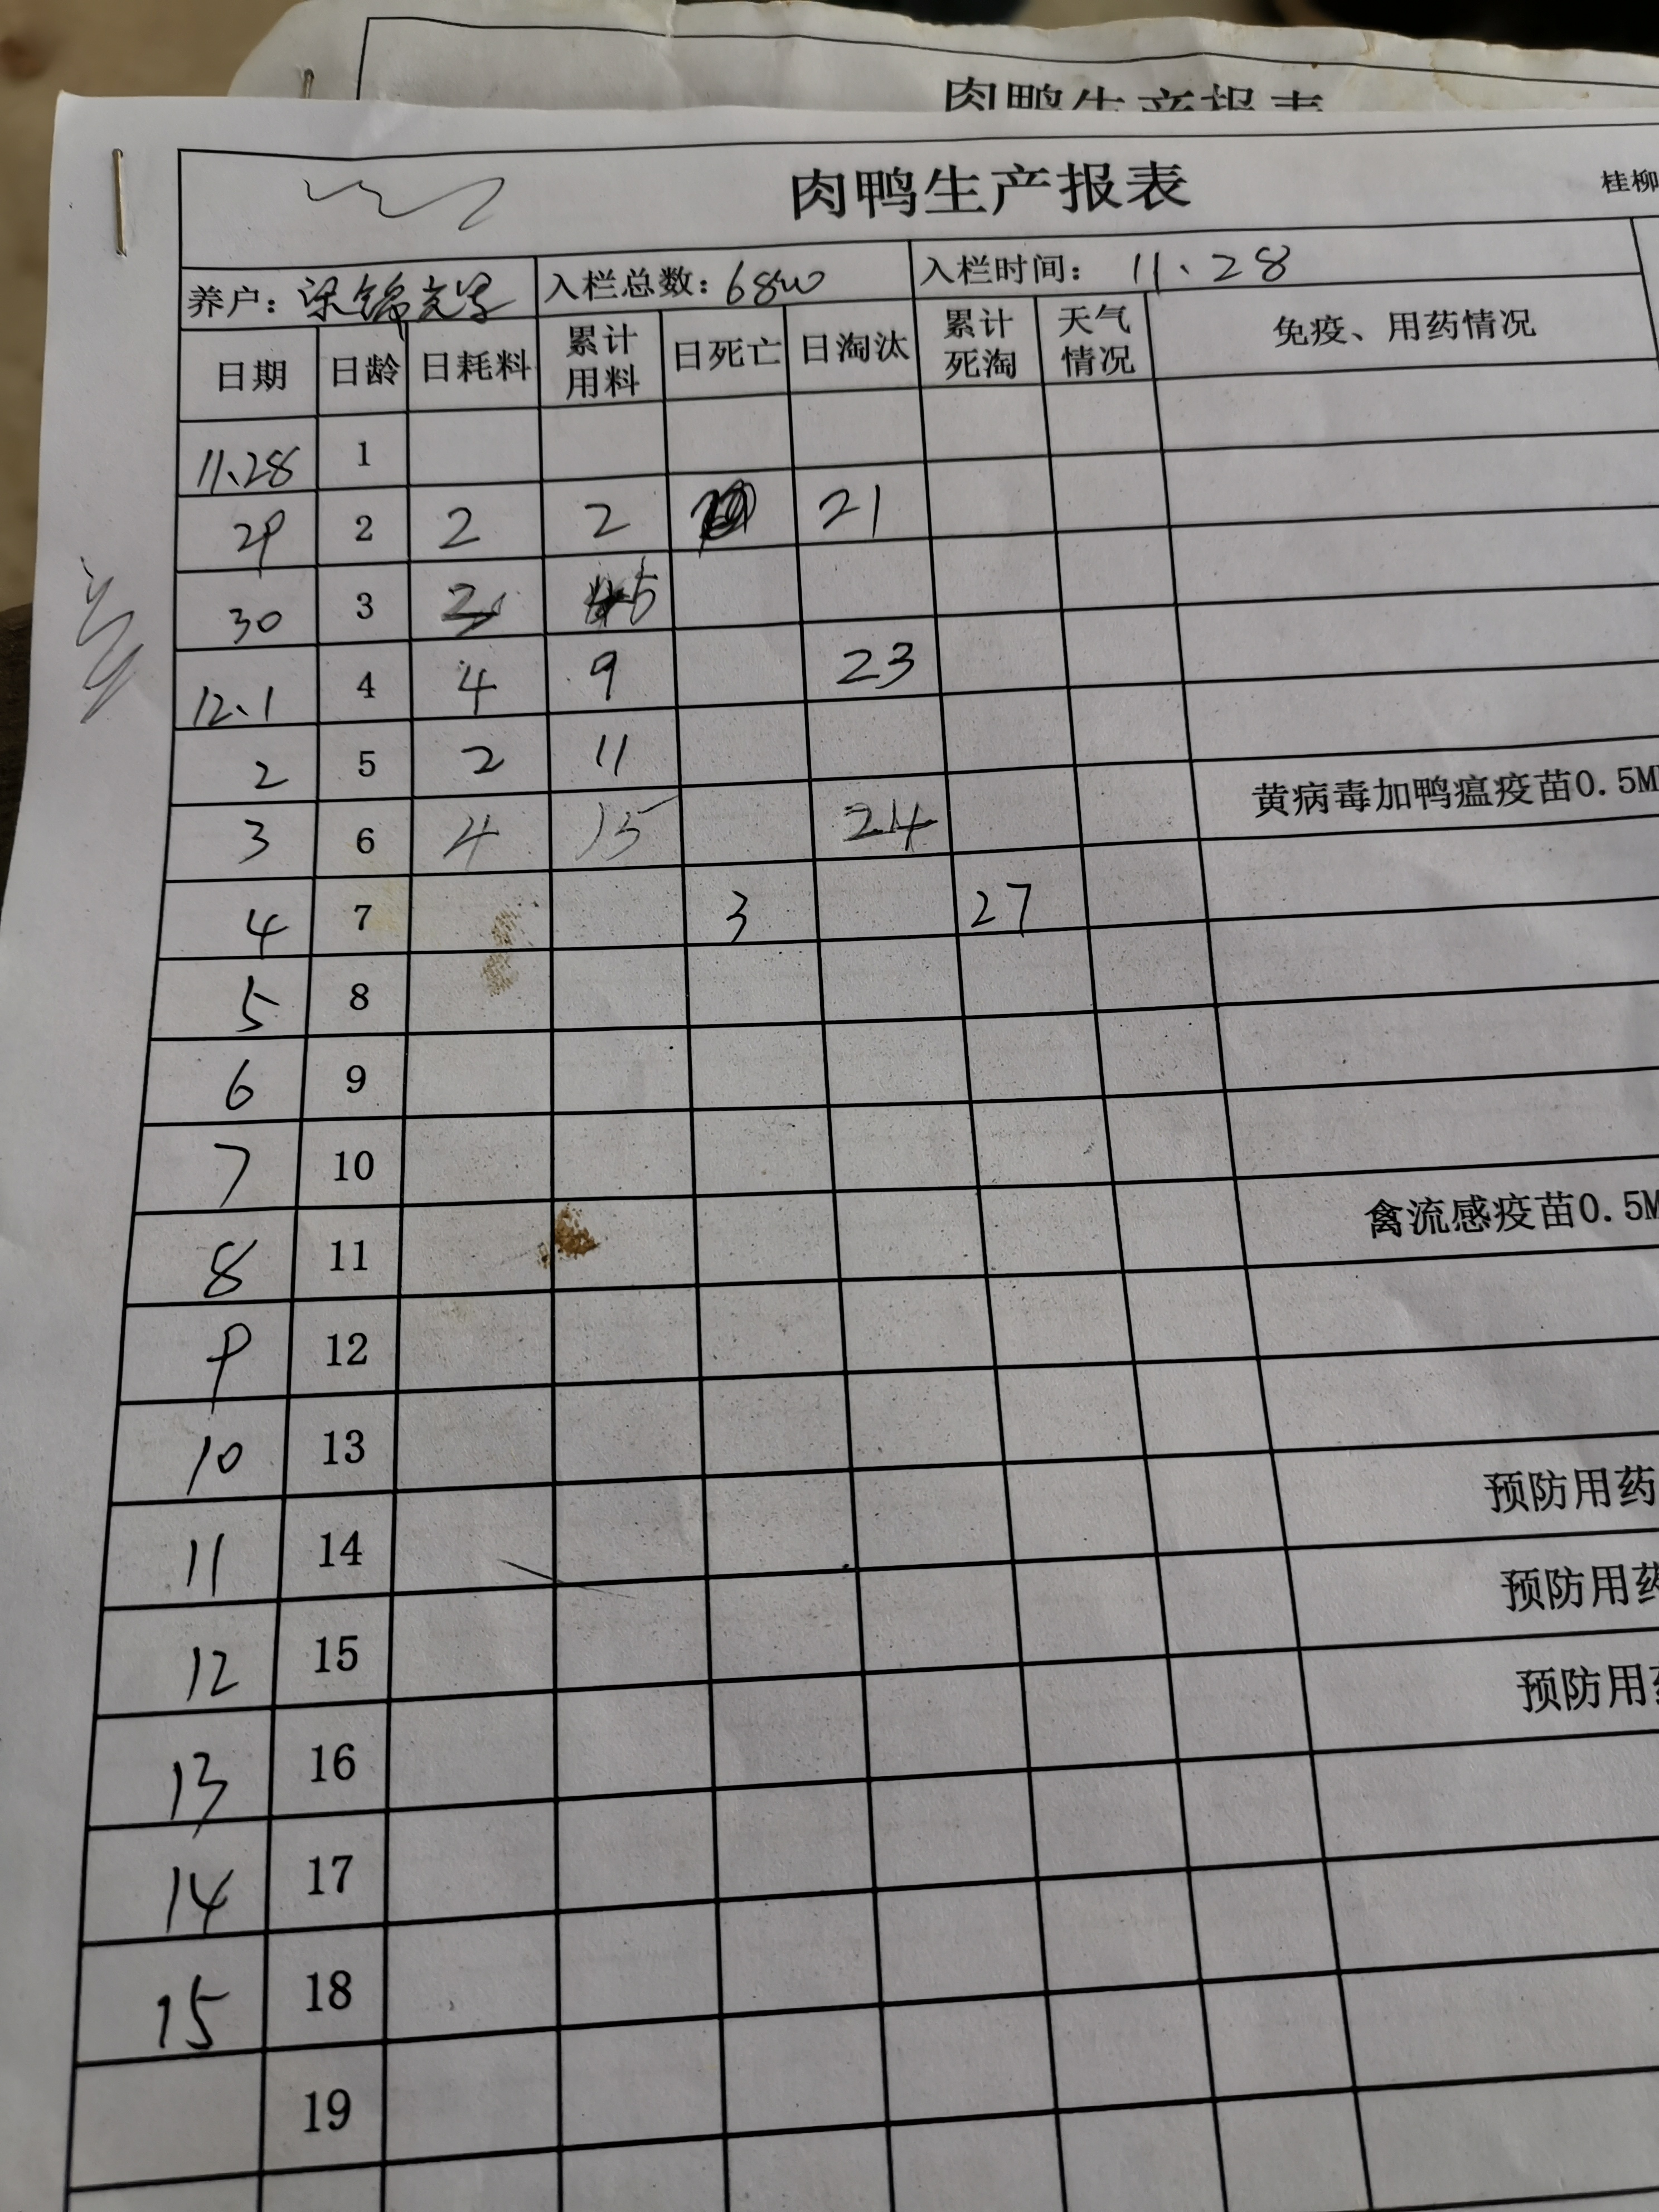 肉鸭生产报表
肉鸭生产报表 桂柳
养户： 入栏总数：6800 入栏时间：11、28
日期 日龄 日耗料 累计用料 日死亡 日淘汰 累计死淘 天气情况 免疫、用药情况
11、28 1
29 2 2 2 21
30 3 5
12、1 4 4 9 23
2 5 2 11
3 6 4 15 24 黄病毒加鸭瘟疫苗0.5M
4 7 3 27
5 8
6 9
7 10
8 11 禽流感疫苗0.5M
9 12
10 13
11 14 预防用药
12 15 预防用药
13 16 预防用
14 17
15 18
19